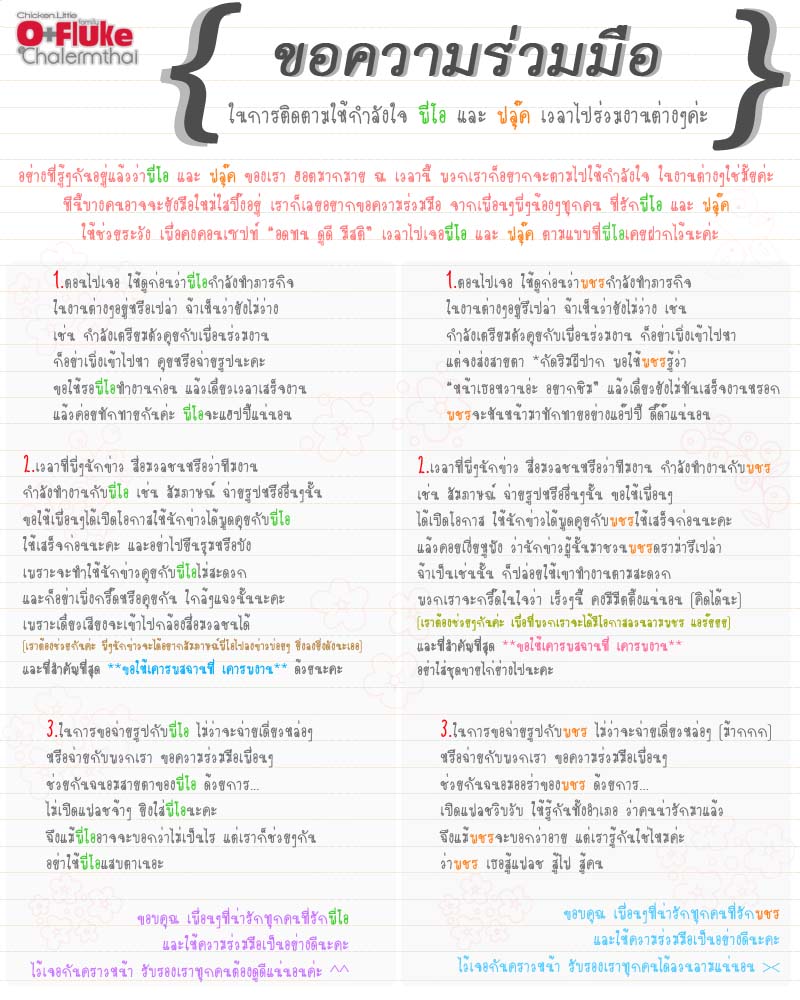 Chicken Little
family
O+Fluke
@Chalermthai
ขอความร่วมมือ
ในการติดตามให้กำลังใจ พี่โอ และ ฟลุ๊ค เวลาไปร่วมงานต่างๆค่ะ
อย่างที่รู้ๆกันอยู่แล้วว่าพี่โอ และ ฟลุ๊ค ของเรา ฮอตมากมาย ณ เวลานี้ พวกเราก็อยากจะตามไปให้กำลังใจ ในงานต่างๆใช่มั้ยค่ะ
ทีนี้บางคนอาจจะยังมือใหม่ใสปิ๊งอยู่ เราก็เลยอยากขอความร่วมมือ จากเพื่อนๆพี่ๆน้องๆทุกคน ที่รักพี่โอ และ ฟลุ๊ค
ให้ช่วยระวัง เพื่อคงคอนเซปท์ "อดทน ดูดี มีสติ" เวลาไปเจอพี่โอ และ ฟลุ๊ค ตามแบบที่พี่โอเคยฝากไว้นะค่ะ
1.ตอนไปเจอ ให้ดูก่อนว่าพี่โอกำลังทำภารกิจ
ในงานต่างๆอยู่หรือเปล่า ถ้าเห็นว่ายังไม่ว่าง
เช่น กำลังเตรียมตัวคุยกับเพื่อนร่วมงาน
ก็อย่าเพิ่งเข้าไปหา คุยหรือถ่ายรูปนะคะ
ขอให้รอพี่โอทำงานก่อน แล้วเดี๋ยวเวลาเสร็จงาน
แล้วค่อยทักทายกันค่ะ พี่โอจะแฮปปี้แน่นอน
2.เวลาที่พี่ๆนักข่าว สื่อมวลชนหรือว่าทีมงาน
กำลังทำงานกับพี่โอ เช่น สัมภาษณ์ ถ่ายรูปหรืออื่นๆนั้น
ขอให้เพื่อนๆได้เปิดโอกาสให้นักข่าวได้พูดคุยกับพี่โอ
ให้เสร็จก่อนนะคะ และอย่าไปยืนรุมหรือบัง
เพราะจะทำให้นักข่าวคุยกับพี่โอไม่สะดวก
และก็อย่าเพิ่งกรี๊ดหรือคุยกัน ใกล้ๆแถวนั้นนะคะ
เพราะเดี๋ยวเสียงจะเข้าไปกล้องสื่อมวลชนได้
(เราต้องช่วยกันค่ะ พี่ๆนักข่าวจะได้อยากสัมภาษณ์พี่โอไปลงข่าวบ่อยๆ ยิ่งลงยิ่งดังนะเออ)
และที่สำคัญที่สุด **ขอให้เคารพสถานที่ เคารพงาน** ด้วยนะคะ
3.ในการขอถ่ายรูปกับพี่โอ ไม่ว่าจะถ่ายเดี่ยวหล่อๆ
หรือถ่ายกับพวกเรา ขอความร่วมมือเพื่อนๆ
ช่วยกันถนอมสายตาของพี่โอ ด้วยการ...
ไม่เปิดแฟลชจ้าๆ ยิงใส่พี่โอนะคะ
ถึงแม้พี่โออาจจะบอกว่าไม่เป็นไร แต่เราก็ช่วยๆกัน
อย่าให้พี่โอแสบตาเนอะ
ขอบคุณ เพื่อนๆที่น่ารักทุกคนที่รักพี่โอ
และให้ความร่วมมือเป็นอย่างดีนะคะ
ไว้เจอกันคราวหน้า รับรองเราทุกคนต้องดูดีแน่นอนค่ะ ^^
1.ตอนไปเจอ ให้ดูก่อนว่าพชรกำลังทำภารกิจ
ในงานต่างๆอยู่รึเปล่า ถ้าเห็นว่ายังไม่ว่าง เช่น
กำลังเตรียมตัวคุยกับเพื่อนร่วมงาน ก็อย่าเพิ่งเข้าไปหา
แต่จงส่งสายตา *กัดริมฝีปาก พอให้พชรรู้ว่า
"หน้าเธอหวานอ่ะ อยากชิม" แล้วเดี๋ยวยังไม่ทันเสร็จงานหรอก
พชรจะหันหน้ามาทักทายอย่างแฮ๊ปปี้ ดี๊ด๊าแน่นอน
2.เวลาที่พี่ๆนักข่าว สื่อมวลชนหรือว่าทีมงาน กำลังทำงานกับพชร
เช่น สัมภาษณ์ ถ่ายรูปหรืออื่นๆนั้น ขอให้เพื่อนๆ
ได้เปิดโอกาส ให้นักข่าวได้พูดคุยกับพชรให้เสร็จก่อนนะคะ
แล้วคอยเงี่ยหูฟัง ว่านักข่าวผู้นั้นมาชวนพชรดราม่ารึเปล่า
ถ้าเป็นเช่นนั้น ก็ปล่อยให้เขาทำงานตามสะดวก
พวกเราจะกรี๊ดในใจว่า เร็วๆนี้ คงมีมีดดิ้งแน่นอน (คิดได้นะ)
(เราต้องช่วยๆกันค่ะ เพื่อที่พวกเราจะได้มีโอกาสลวนลามพชร แอร๊ยยย)
และที่สำคัญที่สุด **ขอให้เคารพสถานที่ เคารพงาน**
อย่าใส่ชุดขายไก่ย่างไปนะคะ
3.ในการขอถ่ายรูปกับพชร ไม่ว่าจะถ่ายเดี่ยวหล่อๆ (ม้ากกก)
หรือถ่ายกับพวกเรา ขอความร่วมมือเพื่อนๆ
ช่วยกันถนอมออร่าของพชร ด้วยการ...
เปิดแฟลชวิบวับ ให้รู้กันทั้งอำเภอ ว่าคนน่ารักมาแล้ว
ถึงแม้พชรจะบอกว่าอาย แต่เรารู้กันใช่ไหมค่ะ
ว่าพชร เธอสู้แฟลช สู้ไฟ สู้คน
ขอบคุณ เพื่อนๆที่น่ารักทุกคนที่รักพชร
และให้ความร่วมมือเป็นอย่างดีนะคะ
ไว้เจอกันคราวหน้า รับรองเราทุกคนได้ลวนลามแน่นอน ><